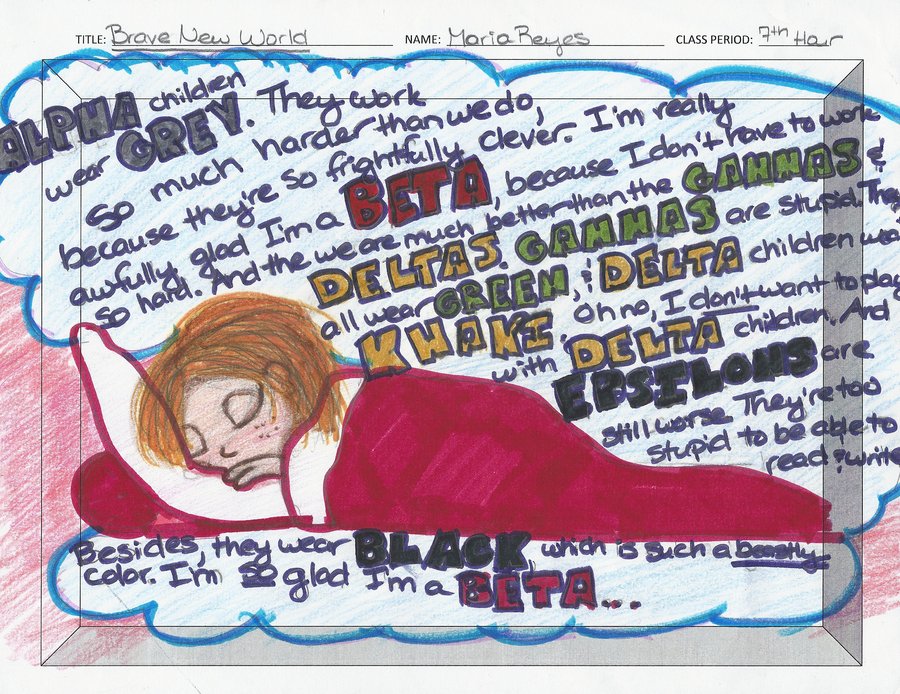 TITLE: Brave New World NAME: Maria Reyes CLASS PERIOD: 7th Hour
ALPHA children
wear GREY. They work
so much harder than we do,
because they're so frightfully clever. I'm really
awfully glad I'm a BETA, because I don't have to work
so hard. And the we are much better than the GAMMAS &
DELTAS GAMMAS are stupid. They
all wear GREEN, & DELTA children wea
KHAKI. Oh no, I don't want to play
with DELTA children. And
EPSILONS are
still worse. They're too
stupid to be able to
read & write
Besides, they wear BLACK, which is such a beastly
color. I'm so glad I'm a BETA...